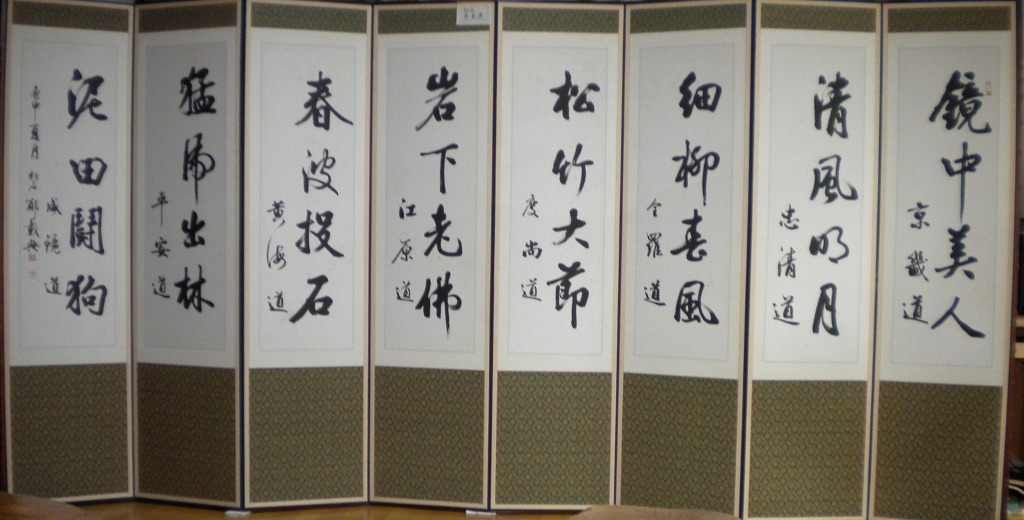 鏡中美人
京畿道
清風明月
忠清道
細柳春風
全羅道
松竹大節
慶尚道
岩下老佛
江原道
春波投石
黄海道
猛虎出林
平安道
泥田鬪狗
咸鏡道
申夏月